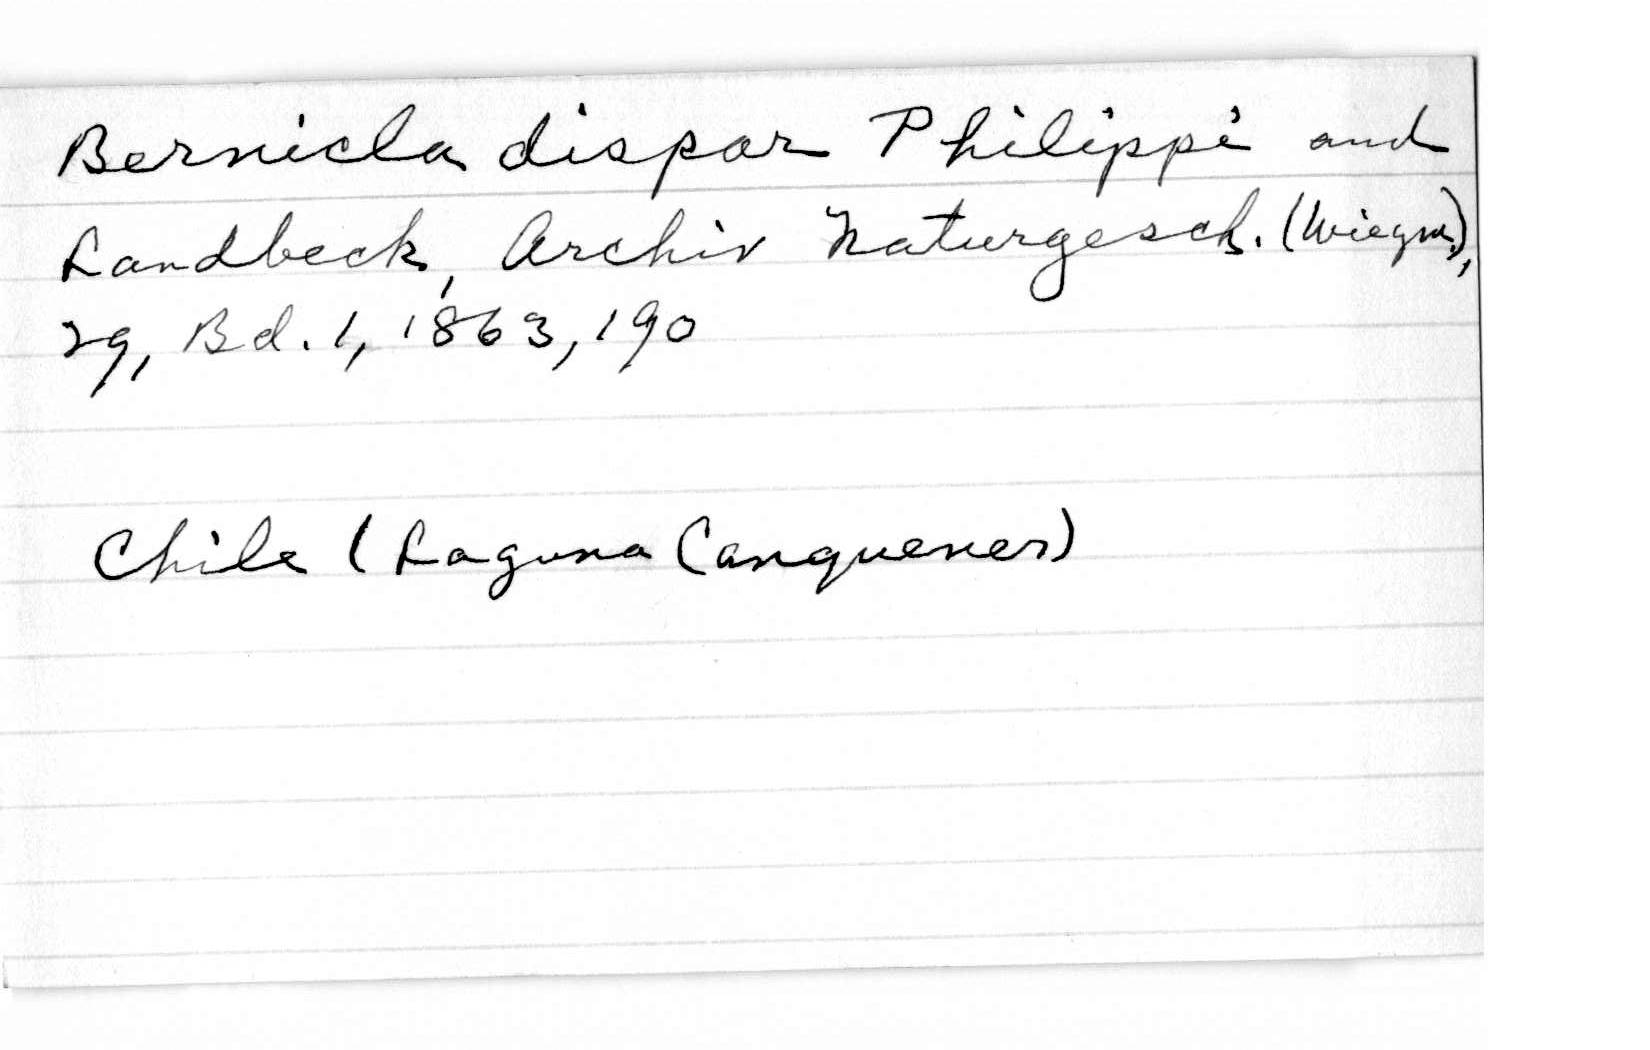 Bernicla dispar Philippi and
Landbeck, Archiv Naturgesch. (Wiegm.),
29, Bd. 1, 1863, 190
Chile (Laguna Canquenes)